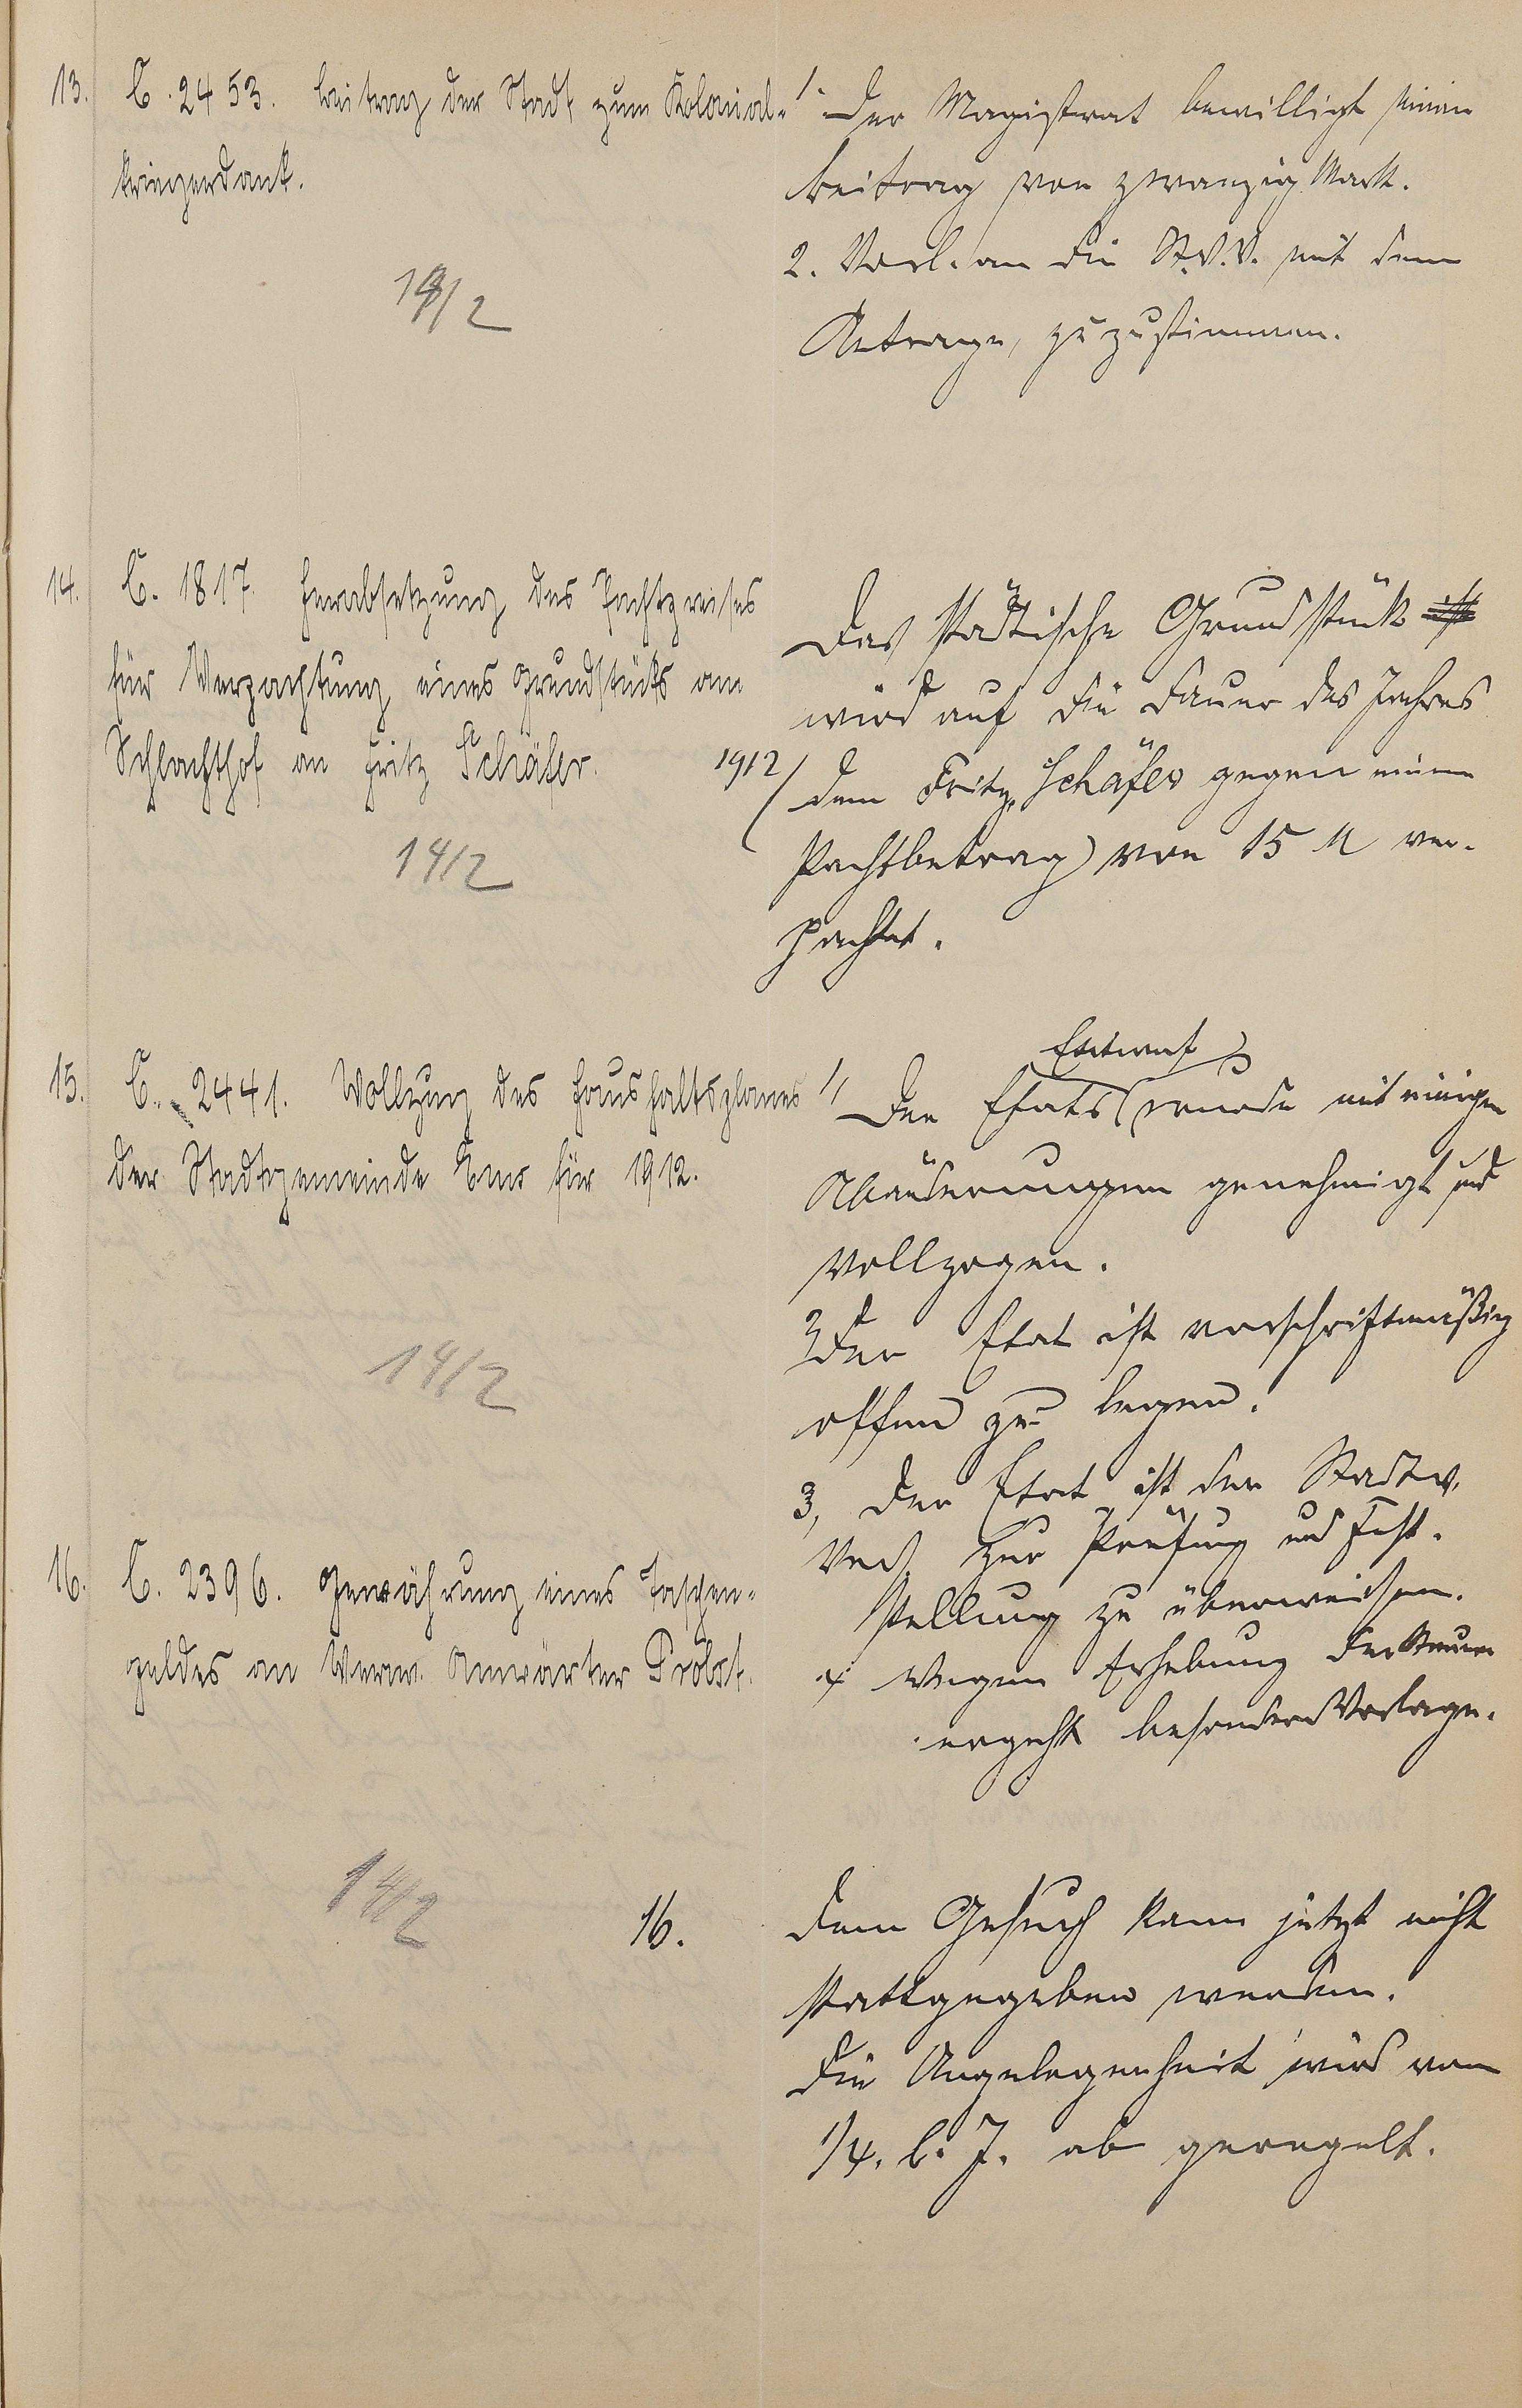 13. C. 2453. Beitrag der Stadt zum Kolonial-
kriegerdank.
14/2
1. Der Magistrat bewilligt einen
Beitrag von zwanzig Mark.
2. Vorl. an die St.V.V. mit dem
Antrage, zuzustimmen.
14. C. 1817. Herabsetzung des Pachtpreises
für Verpachtung eines Grundstücks am
Schlachthof an Fritz Schäfer.
14/2
Das städtische Grundstück ist
wird auf die Dauer des Jahres
1912 / dem Fritz Schäfer gegen einen
Pachtbetrag von 15 M ver-
pachtet.
15. C. 2441. Vollzug des Haushaltsplanes
der Stadtgemeinde Ems für 1912.
14/2
Entwurf
1, Der Etats wurde mit einigen
Abänderungen genehmigt und
vollzogen.
2, Der Etat ist vorschriftmäßig
offen zu legen.
3, Der Etat ist der Stadtv.
Vers. zur Prüfung und Fest-
stellung zu überweisen.
4, Wegen Erhebung der Steuern
ergeht besondere Vorlage.
16. C. 2396. Gewährung eines Taschen-
geldes an Verw. Anwärter Probst.
14/2
16. Dem Gesuch kann jetzt nicht
stattgegeben werden.
Die Angelegenheit wird vom
1/4. l. J. ab geregelt.